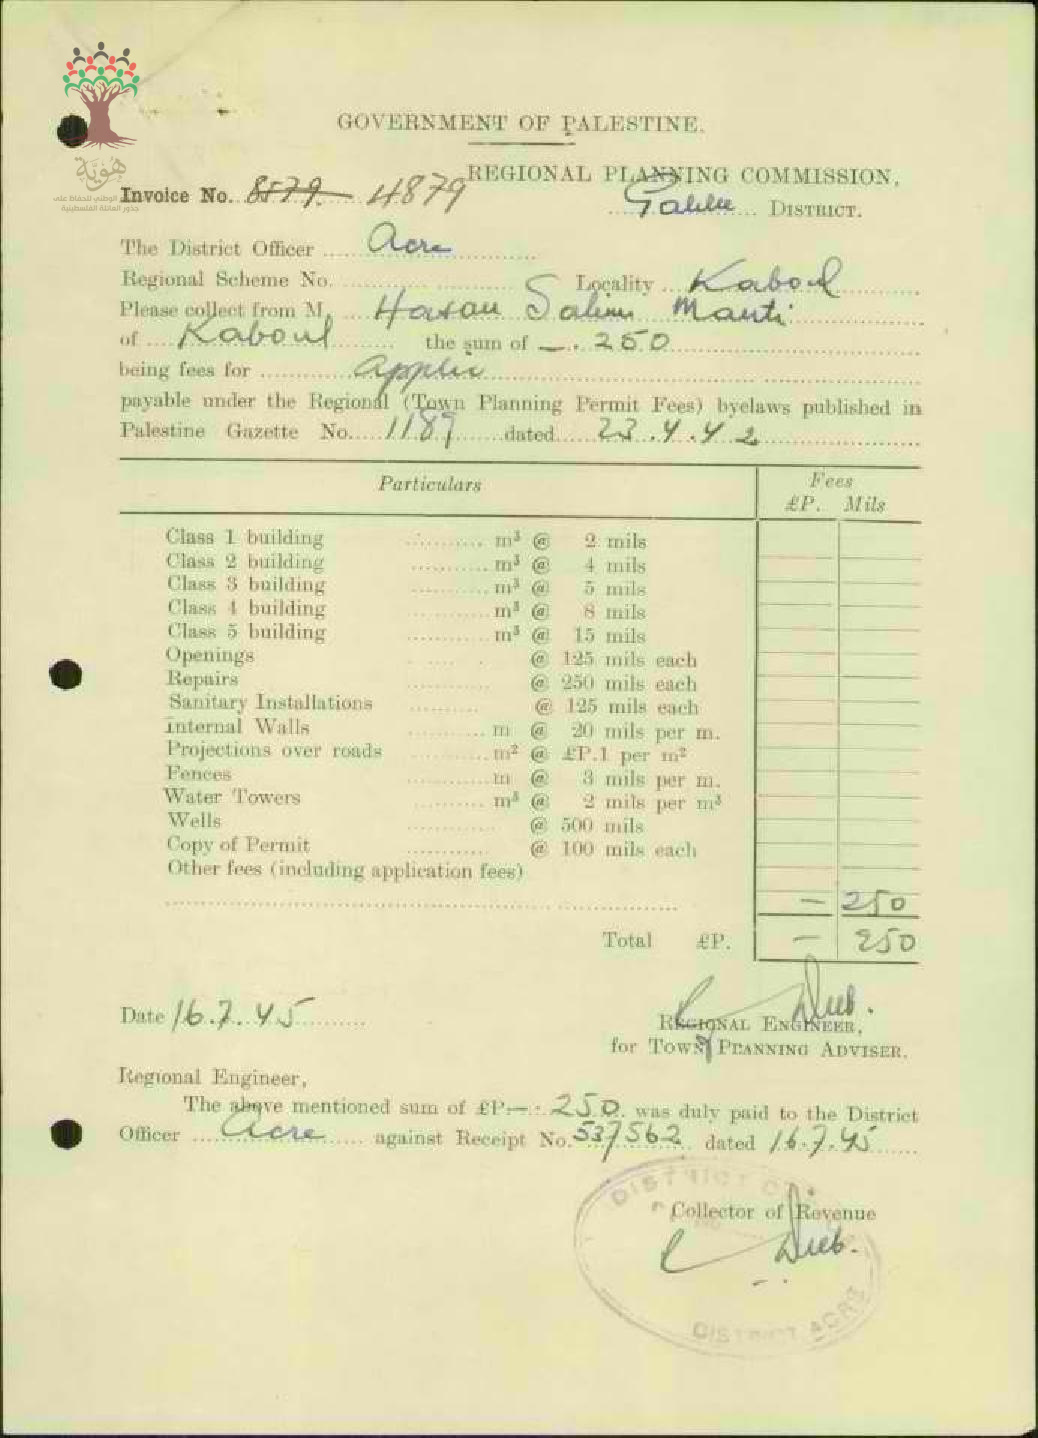 GOVERNMENT OF PALESTINE.
REGIONAL PLANNING COMMISSION,
هُويَّة
الوطني للحفاظ على
جذور العائلة الفلسطينية
Invoice No. 8579 4879
Galilee DISTRICT.
The District Officer Acre
Regional Scheme No. Locality Kaboul
Please collect from M. Hasan Salim Manti
of Kaboul the sum of —.250
being fees for Applic
payable under the Regional (Town Planning Permit Fees) byelaws published in
Palestine Gazette No. 1189 dated 23.4.42
Particulars
Fees
£P. Mils
Class 1 building m³ @ 2 mils
Class 2 building m³ @ 4 mils
Class 3 building m³ @ 5 mils
Class 4 building m³ @ 8 mils
Class 5 building m³ @ 15 mils
Openings @ 125 mils each
Repairs @ 250 mils each
Sanitary Installations @ 125 mils each
Internal Walls m @ 20 mils per m.
Projections over roads m² @ £P.1 per m²
Fences m @ 3 mils per m.
Water Towers m³ @ 2 mils per m³
Wells @ 500 mils
Copy of Permit @ 100 mils each
Other fees (including application fees)
— 250
Total £P. — 250
Date 16.7.45
REGIONAL ENGINEER,
for TOWN PLANNING ADVISER.
Regional Engineer,
The above mentioned sum of £P—.250. was duly paid to the District
Officer Acre against Receipt No. 537562 dated 16.7.45
DISTRICT
Collector of Revenue
DISTRICT ACRE